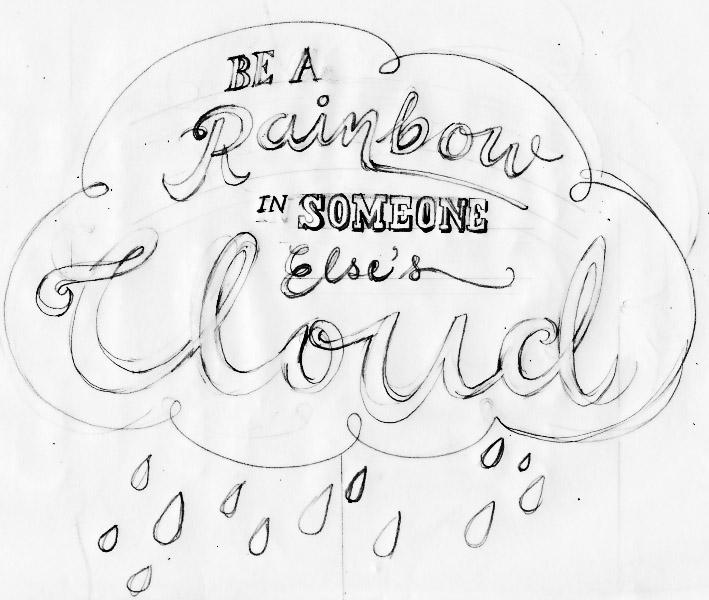 BE A
Rainbow
IN SOMEONE
Else's
Cloud